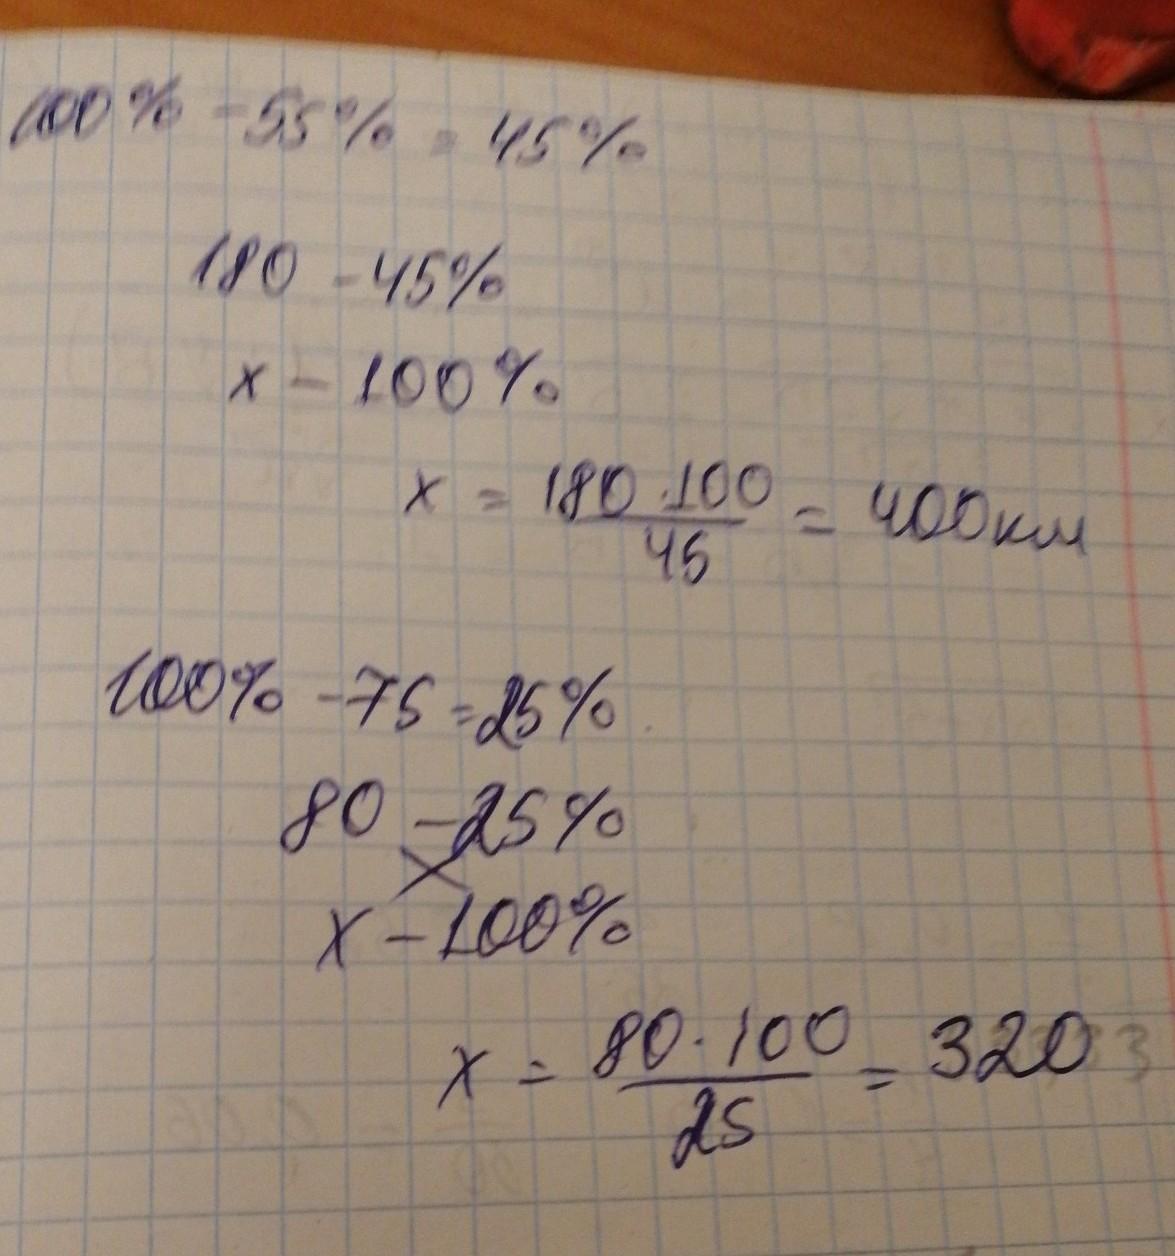 100% - 55% = 45%
180 - 45%
x - 100%
x = 180 · 100 / 45 = 400 км
100% - 75 = 25%
80 - 25%
x - 100%
x = 80 · 100 / 25 = 320